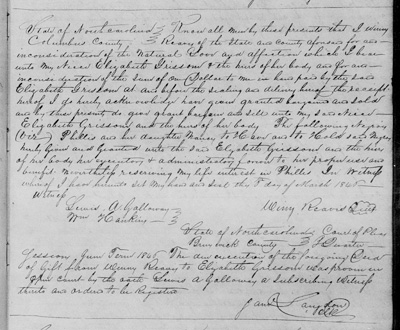 State of North Carolina } Know all men by these presents that I Winny
Columbus County } Reaves of the State and County aforesaid for and
in consideration of the Natural Love and affection which I bear
unto my Niece Elizabeth Grissom & the heirs of her body and for and
in consideration of the Sum of one Dollar to me in hand paid by the said
Elizabeth Grissom at and before the sealing and delivery hereof the receipt
hereof I do hereby acknowledge have given granted bargained and sold
and by these presents do give grant bargain and sell unto my said Niece
Elizabeth Grissom and the heirs of her body the following Negroes
(viz) Phillis and her daughter to Have and to Hold said Negroes
hereby Given and Granted unto the said Elizabeth Grissom and the heirs
of her body her executors & administrators to her proper use and
benefit nevertheless reserving my life interest in Phillis In Witness
whereof I have hereunto set my hand and seal this day of March
Witness
Winny Reaves Seal
Lewis A. Galloway }
Wm Hankins }
State of North Carolina } Court of Pleas
Brunswick County } & Quarter
Sessions June Term The due execution of the foregoing Deed
of Gift from Winny Reaves to Elizabeth Grissom was proven in
open Court by the oath Lewis A Galloway a Subscribing Witness
thereto and ordered to be Registered
Langdon
Clk